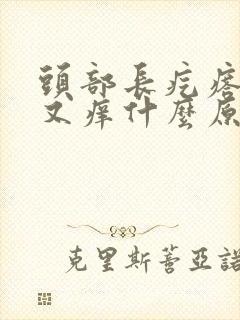 頭部長疙瘩
又痒什麼原
克里斯蒂亞諾